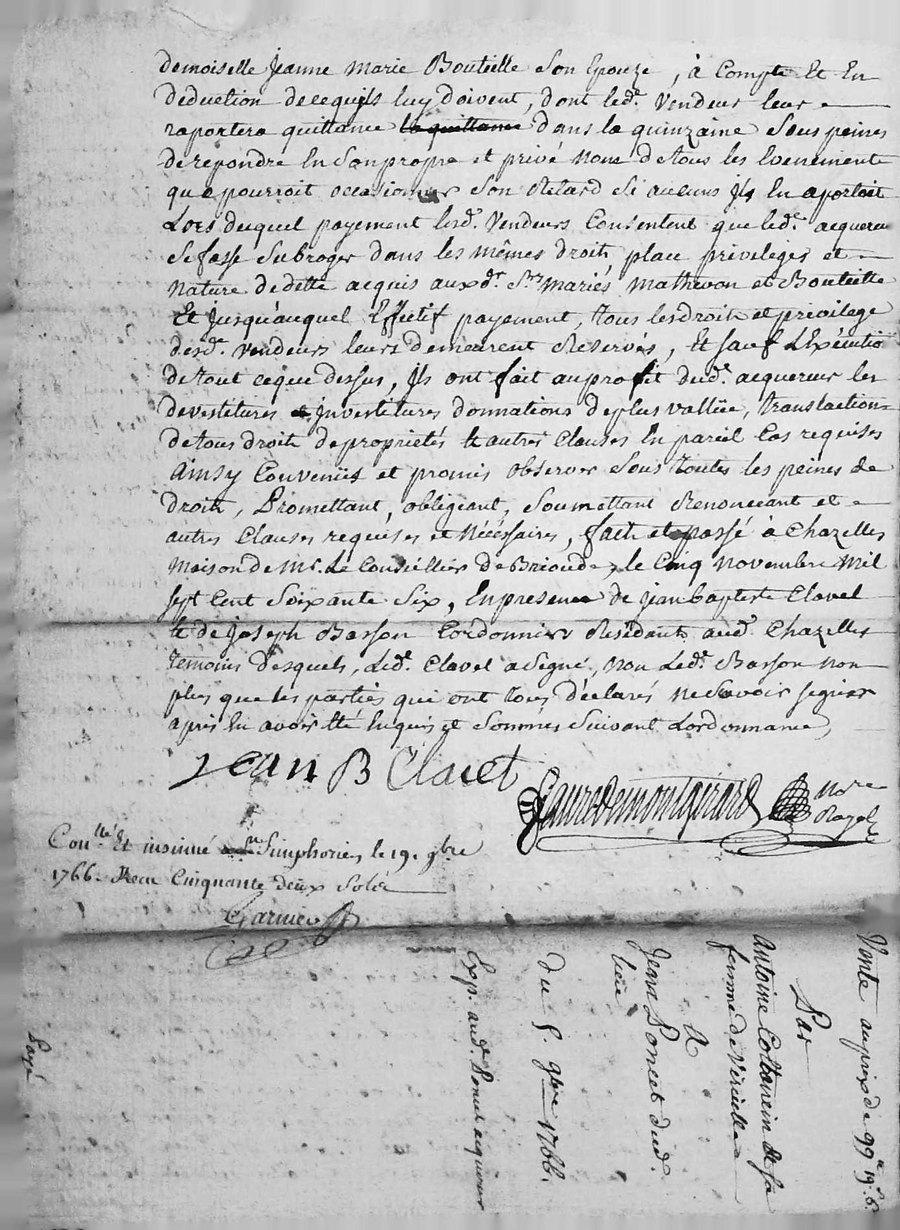 demoiselle Jeanne Marie Bouteille Son Epouze, à Compte Et En
deduction de cequils luy doivent, dont led.^t Vendeur leur
raportera quittance la quittance dans la quinzaine Sous peines
de repondre En Son propre et privé nom de tous les Evenements
que pourroit occasionner Son Retard Si aucuns Ils En aportoit
Lors duquel payement lesd.^s Vendeurs Consentent que led.^t aquereur
Se fasse Subroger dans les mêmes droits place privileges et
nature de dette acquis auxd.^ts S.^rs Mariés Mathevon et Bouteille
Et Jusqu'auquel Effectif payement, tous les droits et privilege
desd.^ts Vendeurs leurs demeurent Reservés, Et Sauf L'Exécution
de tout ceque dessus, Ils ont fait au profit dud.^t acquereur les
devestitures et Investitures donnations de plus vallüe, translactions
de tous droits de propriétés & autres Clauses En pareil Cas requises
Ainsy Convenüs et promis observer Sous toutes les peines de
droits, Promettant, obligeant, Soumettant Renonceant et
autres Clauses requises et Nécéssaires, fait et passé à Chazelles
Maison de M.^r Le Conseiller de Brioude, le Cinq Novembre Mil
Sept Cent Soixante Six, En presence de Jean Baptiste Clavel
& de Joseph Basson Cordonnier Residants aud.^t Chazelles
temoins desquels, Led.^t Clavel a Signé, Non Led.^t Basson non
plus que les parties qui ont tous déclarés ne Savoir Signer
après En avoir Eté Enquis et Sommés Suivant Lordonnance
Jean B Clavel
Faure de montgirard No.re
Royal
Con.^llé Et insinué a S.^t Simphorien, le 19. 9bre
1766. Recu Cinquante deux Sols
Garnier
Vente au prix de 99^# 19^s 6.
Par
Antoine Cottancin & sa
femme de Viricelles
A
Jean Poncet dud.
lieu
du 5. 9bre 1766.
Exp. aud.^t Poncet acquereur
Payé